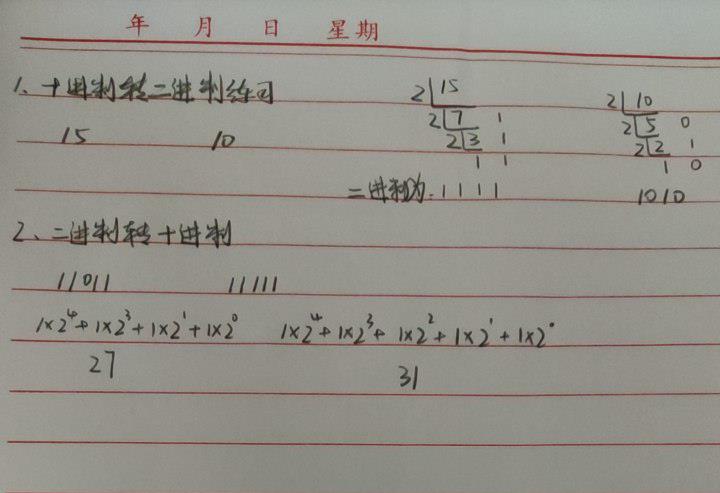 年 月 日 星期
1、十进制转二进制练习
15 10
2 15
2 7 1
2 3 1
1 1
2 10
2 5 0
2 2 1
1 0
二进制为:1111 1010
2、二进制转十进制
11011 11111
1×2⁴+1×2³+1×2¹+1×2⁰ 1×2⁴+1×2³+1×2²+1×2¹+1×2⁰
27 31